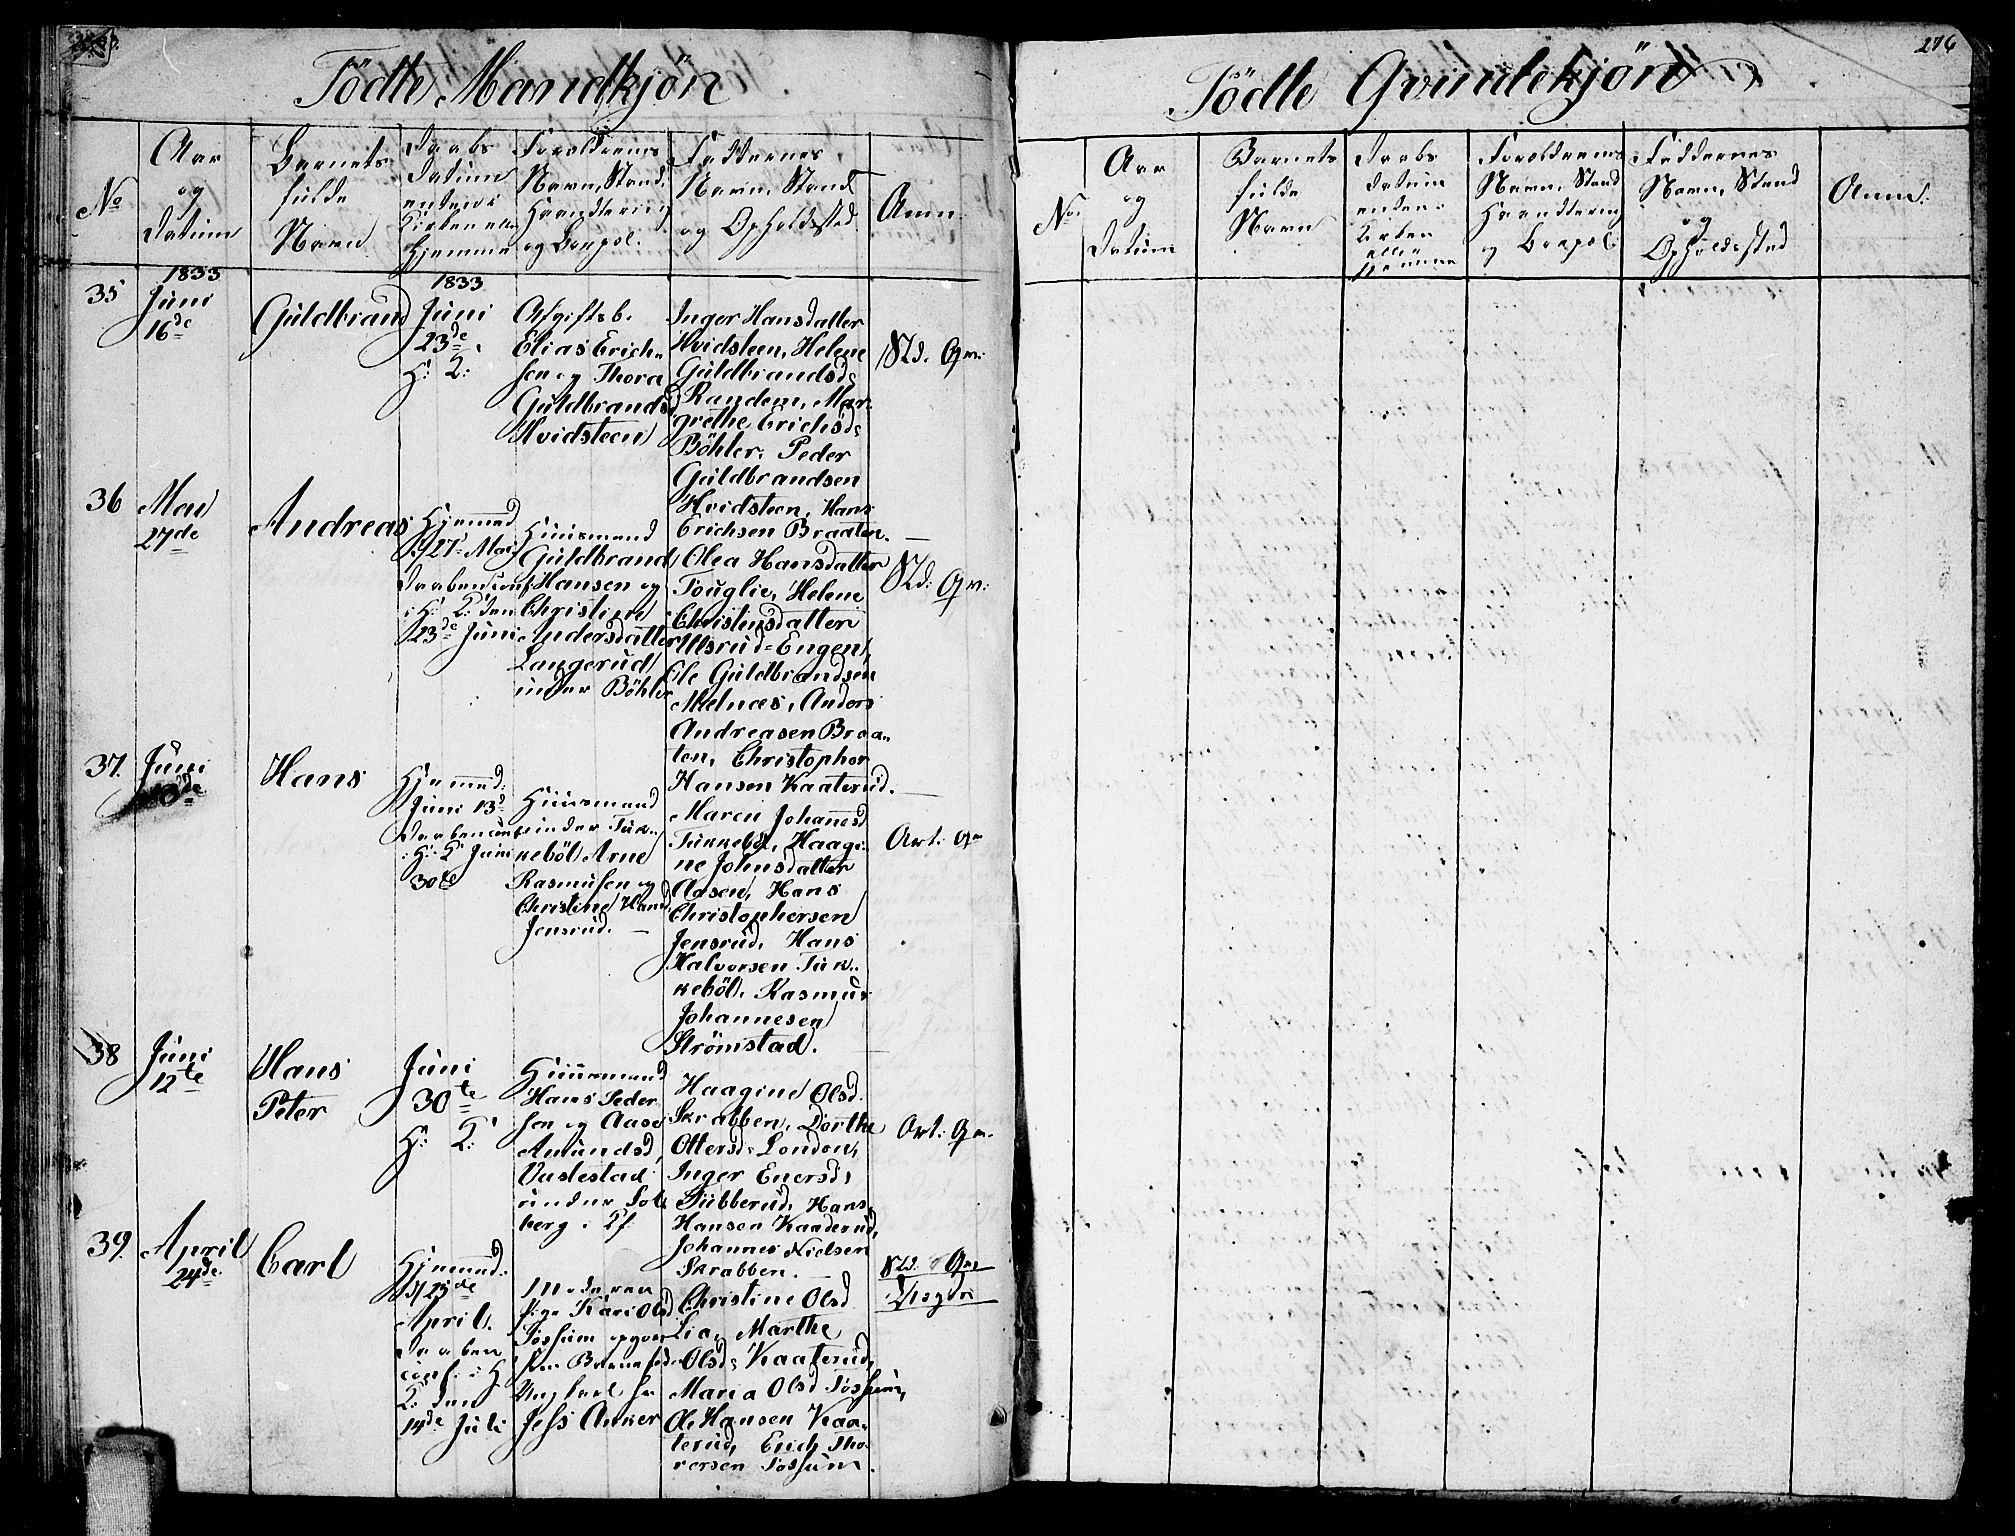 Födte Mandkjön
No
Aar
og
Datum
Barnets
fulde
Navn
Daabs
Datum
enten i
Kirken eller
Hjemme
Foreldrenes
Navn, Stand,
Haandtering
og Boepæl.
Faddernes
Navn, Stand
og Opholdssted.
Anm:
35
1833
Juni
16de
Guldbrand
1833
Juni
23de
H: K:
Afgiftsb.
Elias Erich-
sen og Thora
Guldbrandsd
Hvidsteen
Inger Hansdatter
Hvidsteen, Helene
Guldbrandsd:
Randem, Mar-
grethe Erichsd:
Böhler, Peder
Guldbrandsen
Hvidsteen, Hans
Erichsen Braaten.
Sld. Gr:
36
Mai
27de
Andreas
Hjemmed.
27 Mai
Daaben conf.
i H: K: den
23de Juni
Huusmand
Guldbrand
Hansen og
Christine
Andersdatter
Langerud
under Böhler
Olea Hansdatter
Touglie, Helene
Christensdatter
Ullsrud-Engen,
Ole Guldbrandsen
Melnæs, Anders
Andreasen Braa-
ten, Christopher
Hansen Kaaterud.
Sld: Gr:
37.
Juni
Hans
Hjemmed.
Juni 13d
Daaben conf
i H: K: Juni
30te
Huusmand
under Tuk-
keböl Arne
Rasmusen og
Christine Hansd
Jensrud.
Maren Johannesd
Tukkeböl, Haagi-
ne Johnsdatter
Aasen, Hans
Christophersen
Jensrud, Hans
Halvorsen Tuk-
keböl, Rasmus
Johannesen
Strömstad.
Art: Gr
38
Juni
12te
Hans
Peter
Juni
30te
H: K:
Huusmand
Hans Peder
sen og Aase
Amundsd,
Vastestad
under Sol
berg i Kf.
Haagine Olsd.
Skrabben, Dorthe
Ottersd: London,
Inger Enersd:
Tubberud, Hans
Hansen Kaaderud,
Johannes Nielsen
Skrabben.
Art: Gr.
39.
April
24de
Carl
Hjemmed:
d/25de
April.
Daaben
conf. i H.
K: den
14de Juli
Moderen
Pige Kari Olsd
Fossum opgiver
som Barnefader
Ungkarl
Jess Anker
Christine Olsd
Lia, Marthe
Olsd: Kaaterud,
Maria Olsd Fossum,
Ole Hansen Kaa-
terud, Erich Tho-
rersen Fossum.
Sld. Gr
Uegte
276
Födte Qvindekjön
No
Aar
og
Datum
Barnets
fulde
Navn
Daabs
Datum
enten i
Kirken
eller
Hjemme
Foreldrenes
Navn, Stand
Haandtering
og Boepæl:
Faddernes
Navn, Stand
og
Opholdssted
Anm: